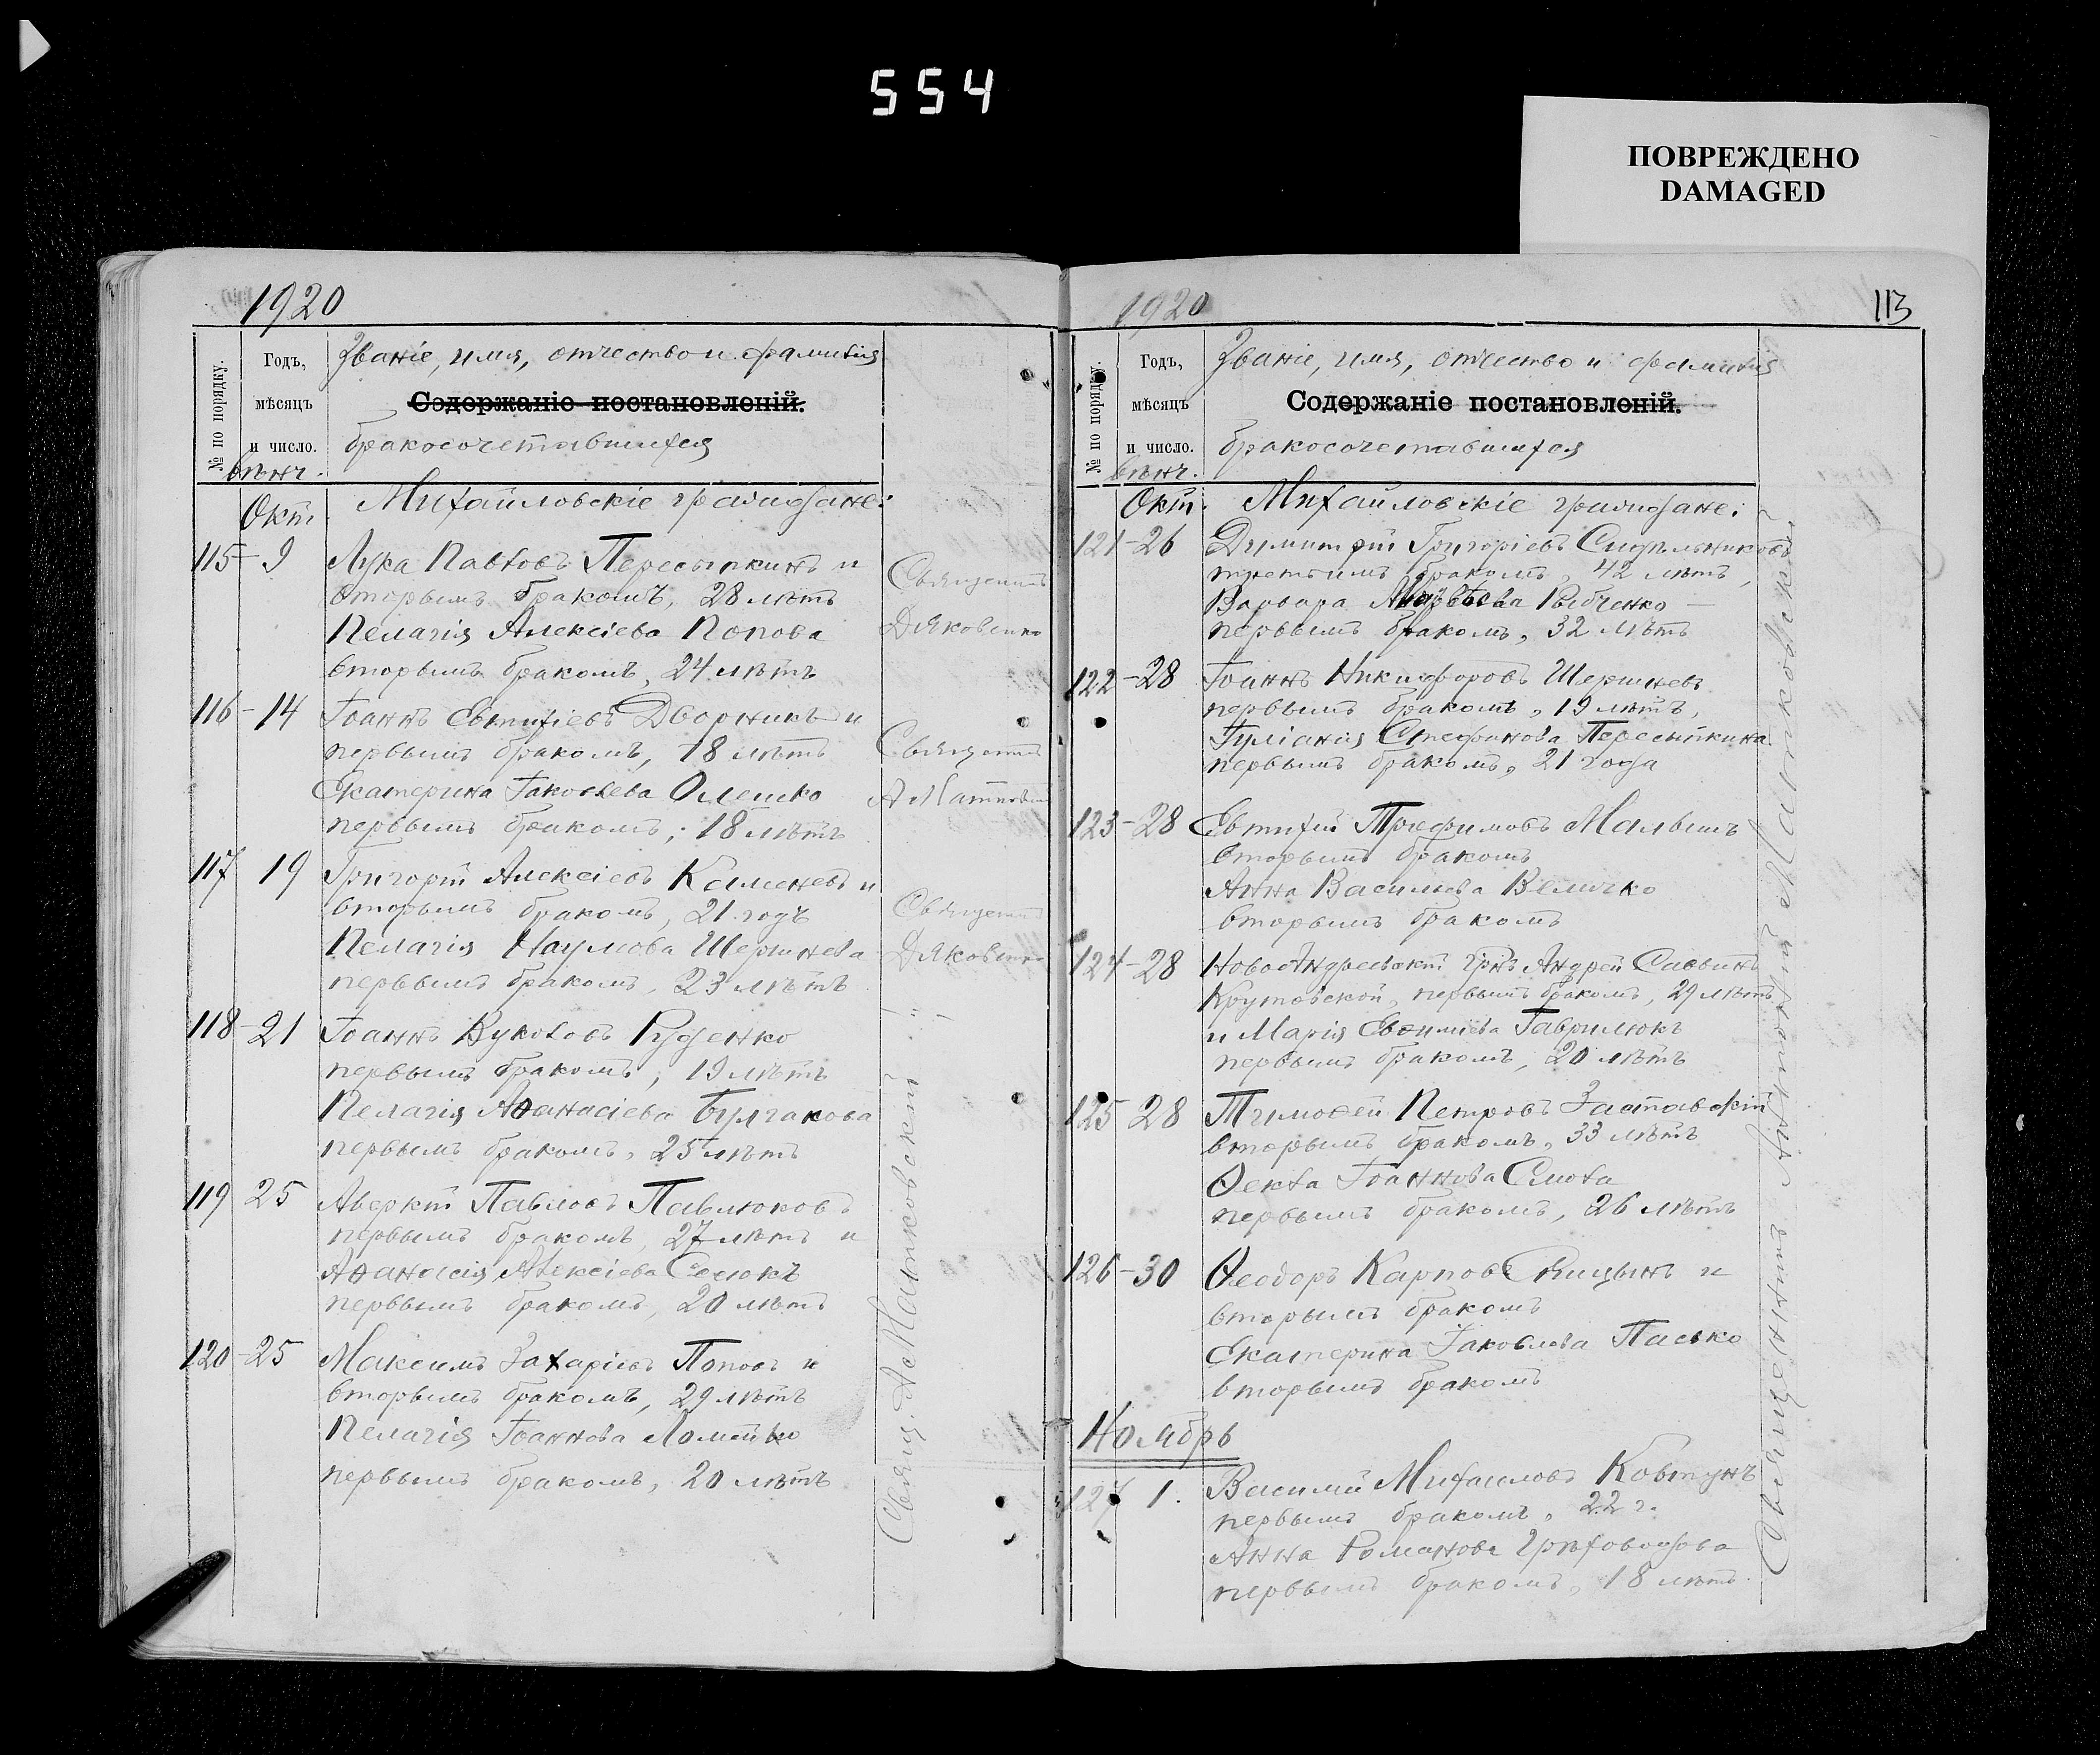 554
ПОВРЕЖДЕНО
DAMAGED
1920
№ по порядку.
Годъ,
мѣсяцъ
и число.
вѣнч.
Званіе, имя, отчество и фамилія
Содержаніе постановленій.
бракосочетавшихся
Окт. Михайловскіе граждане:
115 - 9 Лука Павловъ Пересыпкинъ и
вторымъ бракомъ, 28 лѣтъ
Пелагія Алексіева Попова
вторымъ бракомъ, 24 лѣтъ
Священникъ
Дяковенко
116 - 14 Іоаннъ Евтихіевъ Дворникъ и
первымъ бракомъ, 18 лѣтъ
Екатерина Іаковлева Олешко
первымъ бракомъ, 18 лѣтъ
Священникъ
117 19 Григорій Алексіевъ Каменевъ и
вторымъ бракомъ, 21 годъ
Пелагія Наумова Шершнева
первымъ бракомъ, 23 лѣтъ
Священникъ
Дяковенко
118 - 21 Іоаннъ Вуколовъ Руденко
первымъ бракомъ, 19 лѣтъ
Пелагія Аѳанасіева Булгакова
первымъ бракомъ, 25 лѣтъ
119 25 Аверкій Павловъ Павлюковъ
первымъ бракомъ, 27 лѣтъ и
Аѳанасія Алексіева
первымъ бракомъ, 20 лѣтъ
120 - 25 Максимъ Захаріевъ Поповъ и
вторымъ бракомъ, 29 лѣтъ
Пелагія Іоаннова
первымъ бракомъ, 20 лѣтъ
Свящ. А Матковскій
1920
113
№ по порядку.
Годъ,
мѣсяцъ
и число.
вѣнч.
Званіе, имя, отчество и фамилія
Содержаніе постановленій.
бракосочетавшихся
Окт. Михайловскіе граждане:
121 - 26 Димитрій Григоріевъ Сидѣльниковъ
третьимъ бракомъ, 42 лѣтъ,
Варвара Рябченко —
первымъ бракомъ, 32 лѣтъ
122 - 28 Іоаннъ Никифоровъ Шершневъ
первымъ бракомъ, 19 лѣтъ,
Іуліанія Стефанова Пересыпкина
первымъ бракомъ, 21 года
123 - 28 Евтихій Трофимовъ
вторымъ бракомъ
Анна Васильева Величко
вторымъ бракомъ
124 - 28 НовоАндреевскій грнъ Андрей Саввинъ
Крутовской, первымъ бракомъ, 29 лѣтъ
и Марія Евѳиміева Гаврилюкъ
первымъ бракомъ, 20 лѣтъ
125 28 Тимоѳей Петровъ Заставскій
вторымъ бракомъ, 33 лѣтъ
Ѳекла Іоаннова
первымъ бракомъ, 26 лѣтъ
126 - 30 Ѳеодоръ Карповъ Спицынъ и
вторымъ бракомъ
Екатерина Іаковлева Пасько
вторымъ бракомъ
Ноябрь
127 1. Василій Михаиловъ Ковтунъ
первымъ бракомъ, 22 г.
Анна Романова Грѣховодова
первымъ бракомъ, 18 лѣтъ
Священникъ Антоній Матковскій